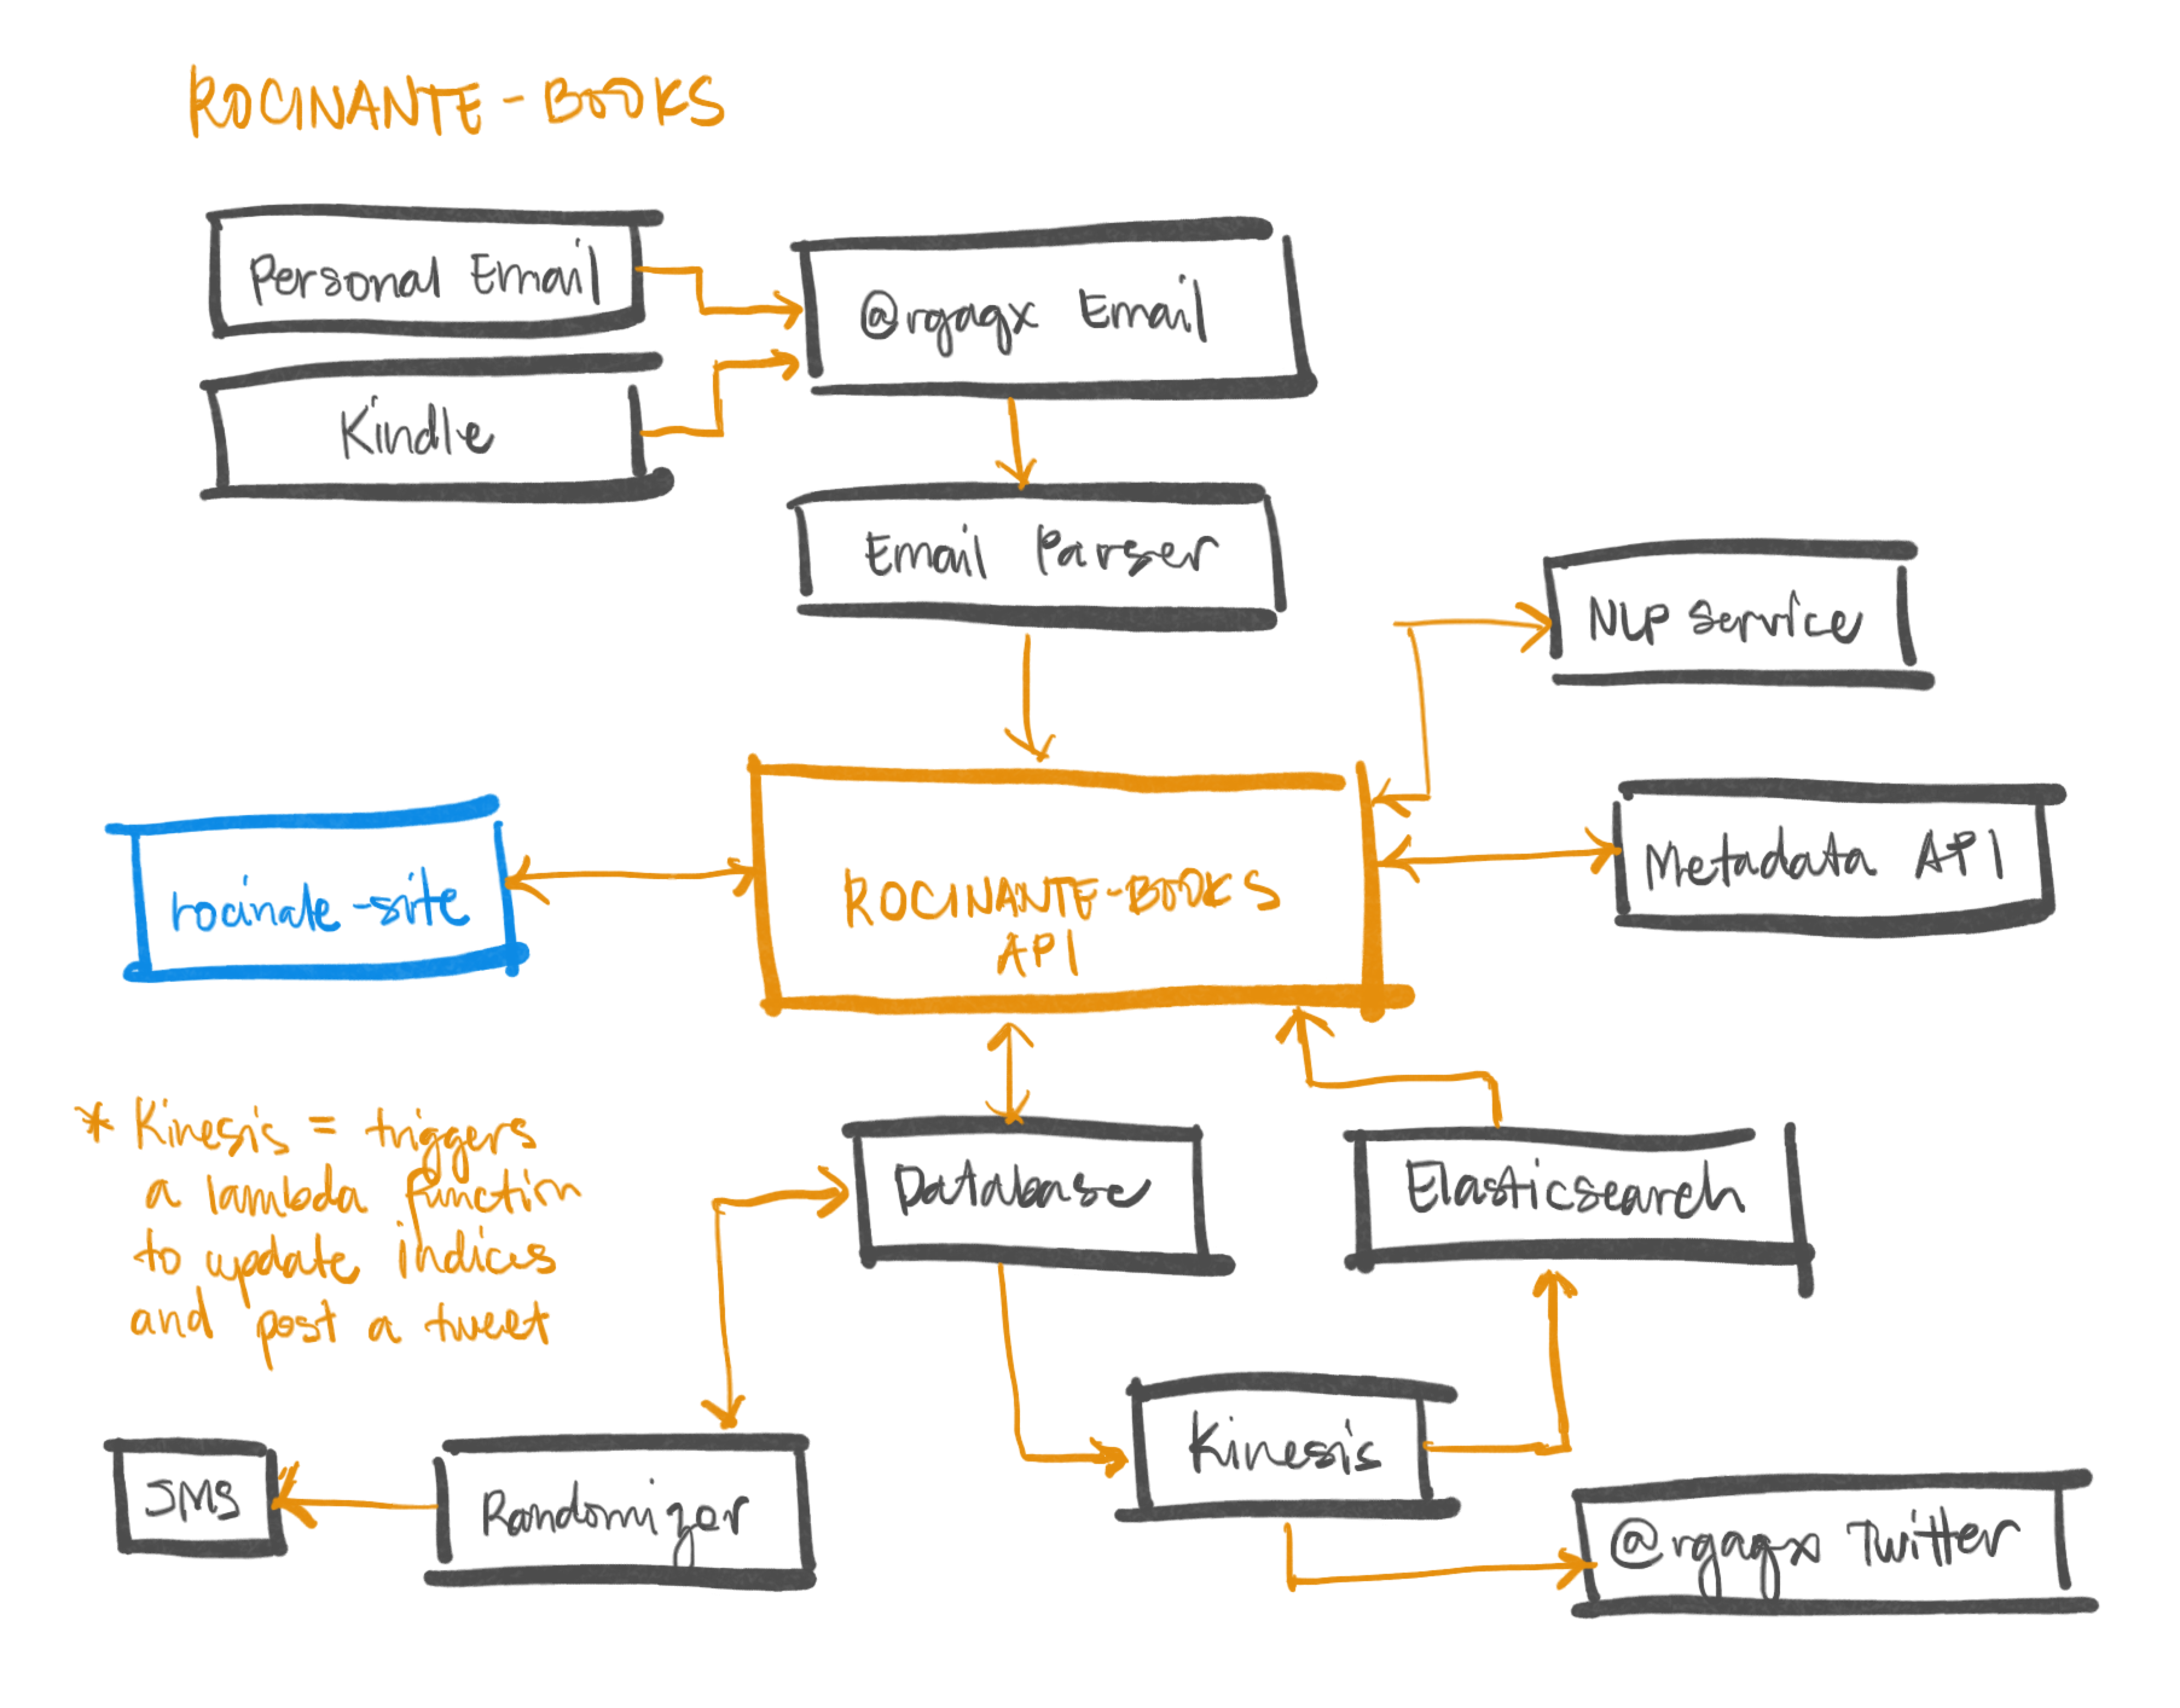 ROCINANTE-BOOKS
Personal Email
@rgagx Email
Kindle
Email Parser
NLP Service
Metadata API
rocinate-site
ROCINANTE-BOOKS
API
* Kinesis = triggers
a lambda function
to update indices
and post a tweet
Database
Elasticsearch
Kinesis
SMS
Randomizer
@rgagx Twitter